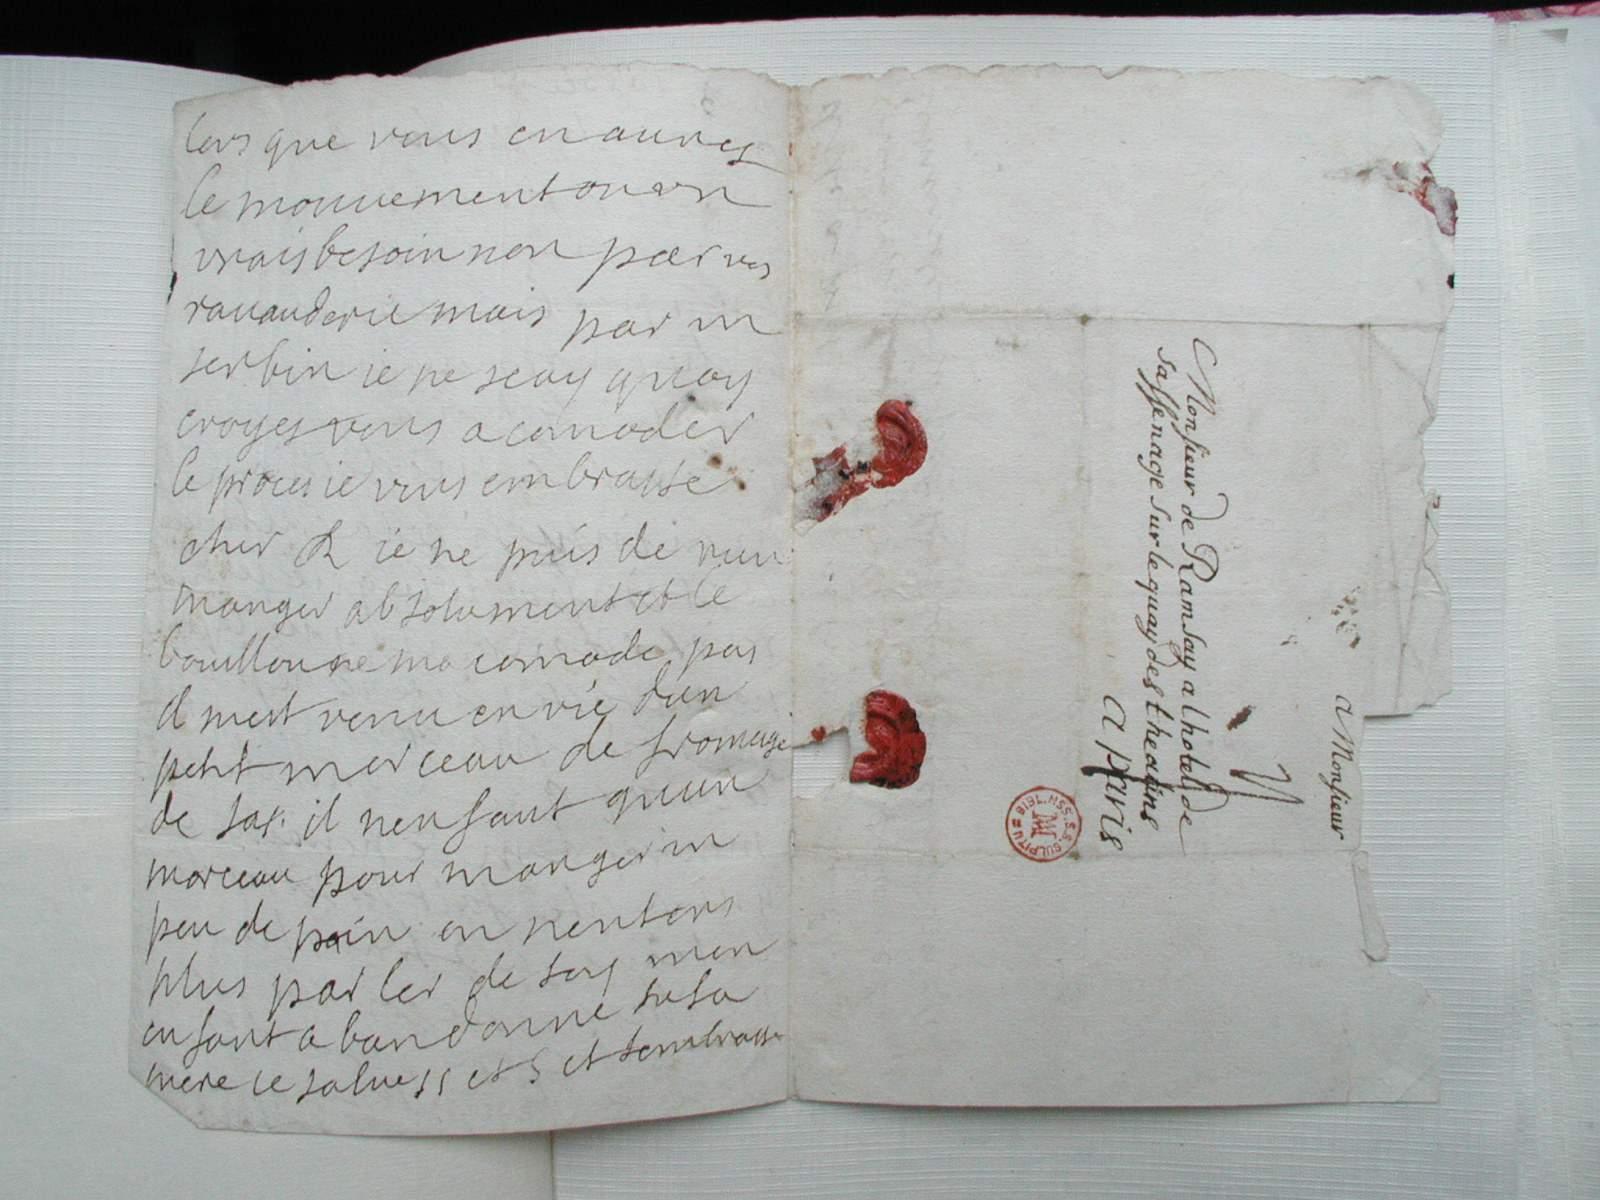 lors que vous en aures
le mouuement ou un
vrais besoin non par vos
rauauderie mais par un
ser bin ie ne scay quoy
croyes vous acomoder
le proces ie vous embrasse
cher R ie ne puis de rien
manger absolument et le
bouillon ne macomode pas
il mest venu envie dun
petit morceau de fromage
de sas. il nen faut quun
morceau pour manger un
peu de pain on nentens
plus parler de soy mon
enfant abandonne
mere ie salue et S et tembrasse
a Monsieur
Monsieur de Ramsay a lhotel de
Sassenage sur le quay des theatins
a paris
S.S. SULPITII
1618